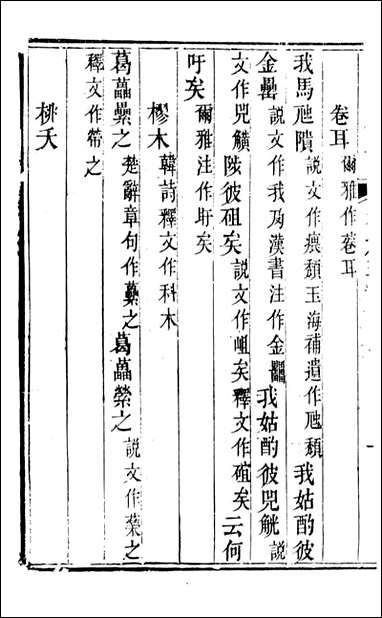 卷耳爾雅作菤耳
我馬虺隤說文作瘣頽玉海補遺作虺頽我姑酌彼
金罍說文作我夃漢書注作金䨻我姑酌彼兕觥說
文作兕觵陟彼砠矣說文作岨矣釋文作碹矣云何
吁矣爾雅注作盱矣
樛木韓詩釋文作科木
葛藟纍之楚辭章句作虆之葛藟縈之說文作䔛之
釋文作帶之
桃夭